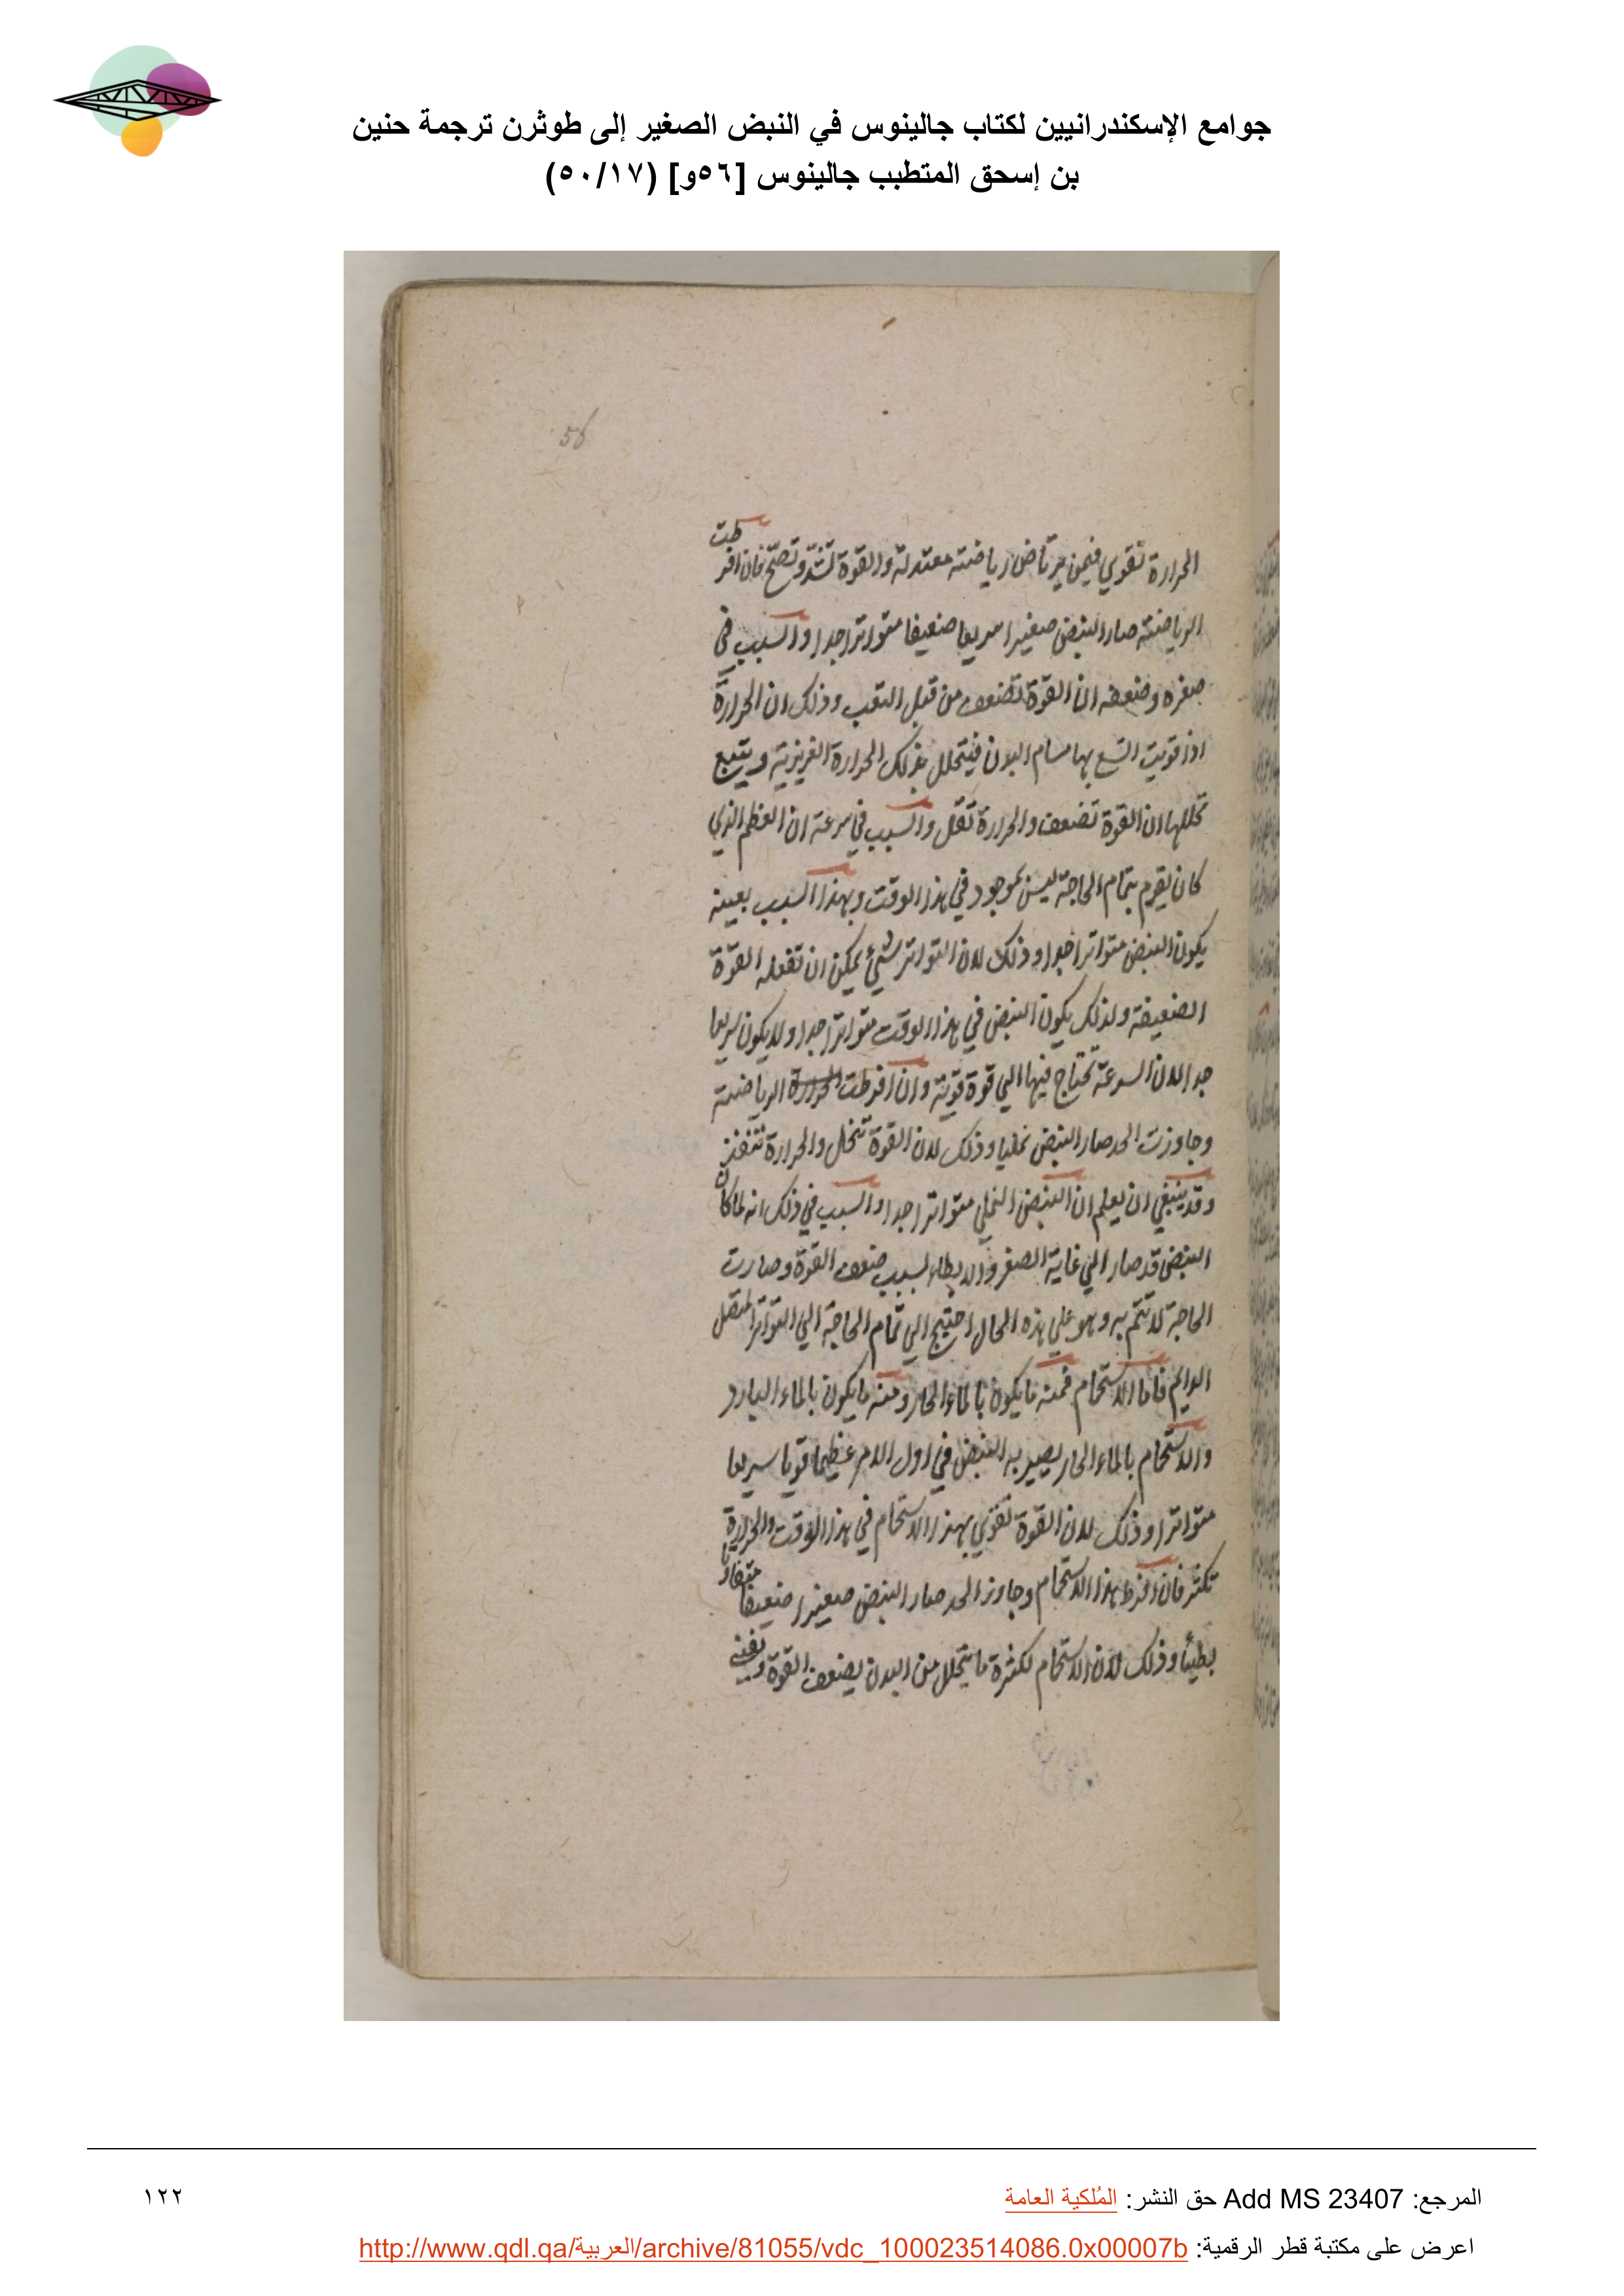 جوامع الإسكندرانيين لكتاب جالينوس في النبض الصغير إلى طوثرن ترجمة حنين
بن إسحق المتطبب جالينوس [٥٦و] (٥٠/١٧)
56
الحرارة تقوي فيمن يرتاض رياضته معتدلة والقوة تشتد وتصح فان افرطت
الرياضته صار النبض صغيرا سريعا ضعيفا متواترا جدا والسبب في
صغره وضعفه ان القوة تضعف من قبل التعب وذلك ان الحرارة
اذا قويت اتسع بها مسام البدن فيتحلل بذلك الحرارة الغريزية ويتبع
تحللها ان القوة تضعف والحرارة تقل والسبب في سرعته ان العظم الذي
كان يقوم بتمام الحاجة ليس بموجود في هذا الوقت وبهذا السبب بعينه
يكون النبض متواترا جدا وذلك لان التواتر شئ يمكن ان تفعله القوة
الضعيفة ولذلك يكون النبض في هذا الوقت متواترا جدا ولا يكون سريعا
جدا لان السرعة تحتاج فيها الي قوة قوية وان افرطت الحرارة الرياضته
وجاوزت الحد صار النبض نمليا وذلك لان القوة تنحل والحرارة تنفذ
وقد ينبغي ان يعلم ان النبض النملي متواتر جدا والسبب في ذلك انه لما كان
النبض قد صار الي غاية الصغر والابطاء لسبب ضعف القوة وصارت
الحاجة لا تتم به وهو علي هذه الحال احتيج الي تمام الحاجة الي التواتر المتصل
الدايم فاما الاستحمام فمنه ما يكون بالماء الحار ومنه ما يكون بالماء البارد
والاستحمام بالماء الحار يصير به النبض في اول الامر عظيما قويا سريعا
متواترا وذلك لان القوة تقوي بهذا الاستحمام في هذا الوقت والحرارة
تكثر فان افرط هذا الاستحمام وجاوز الحد صار النبض صغيرا ضعيفا متفاوتا
بطيئا وذلك لان الاستحمام لكثرة ما يتحلل من البدن يضعف القوة ويفني
المرجع: Add MS 23407 حق النشر: المُلكية العامة
١٢٢
اعرض على مكتبة قطر الرقمية: http://www.qdl.qa/العربية/archive/81055/vdc_100023514086.0x00007b